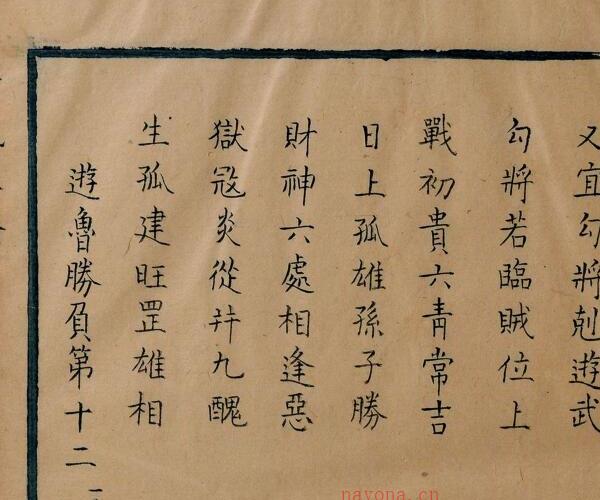 又宜勾將剋遊武
勾將若臨賊位上
戰初貴六青常吉
日上孤雄孫子勝
財神六處相逢惡
獄冦炎從幷九醜
生孤建旺罡雄相
遊魯勝負第十二
nayona.cn